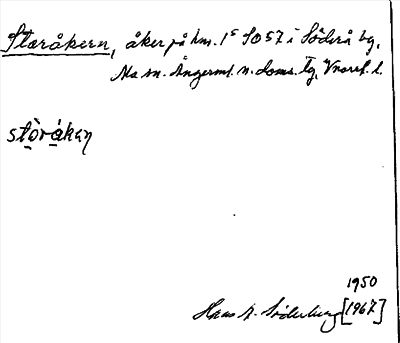 Storåkern, åker på hm. 1⁵ SO57 i Söderå by,
Ala sn. Ångerml. n. doms. tg, Vnorrl. l.
stòråkaṇ
1950
Hans A. Söderberg [1967]